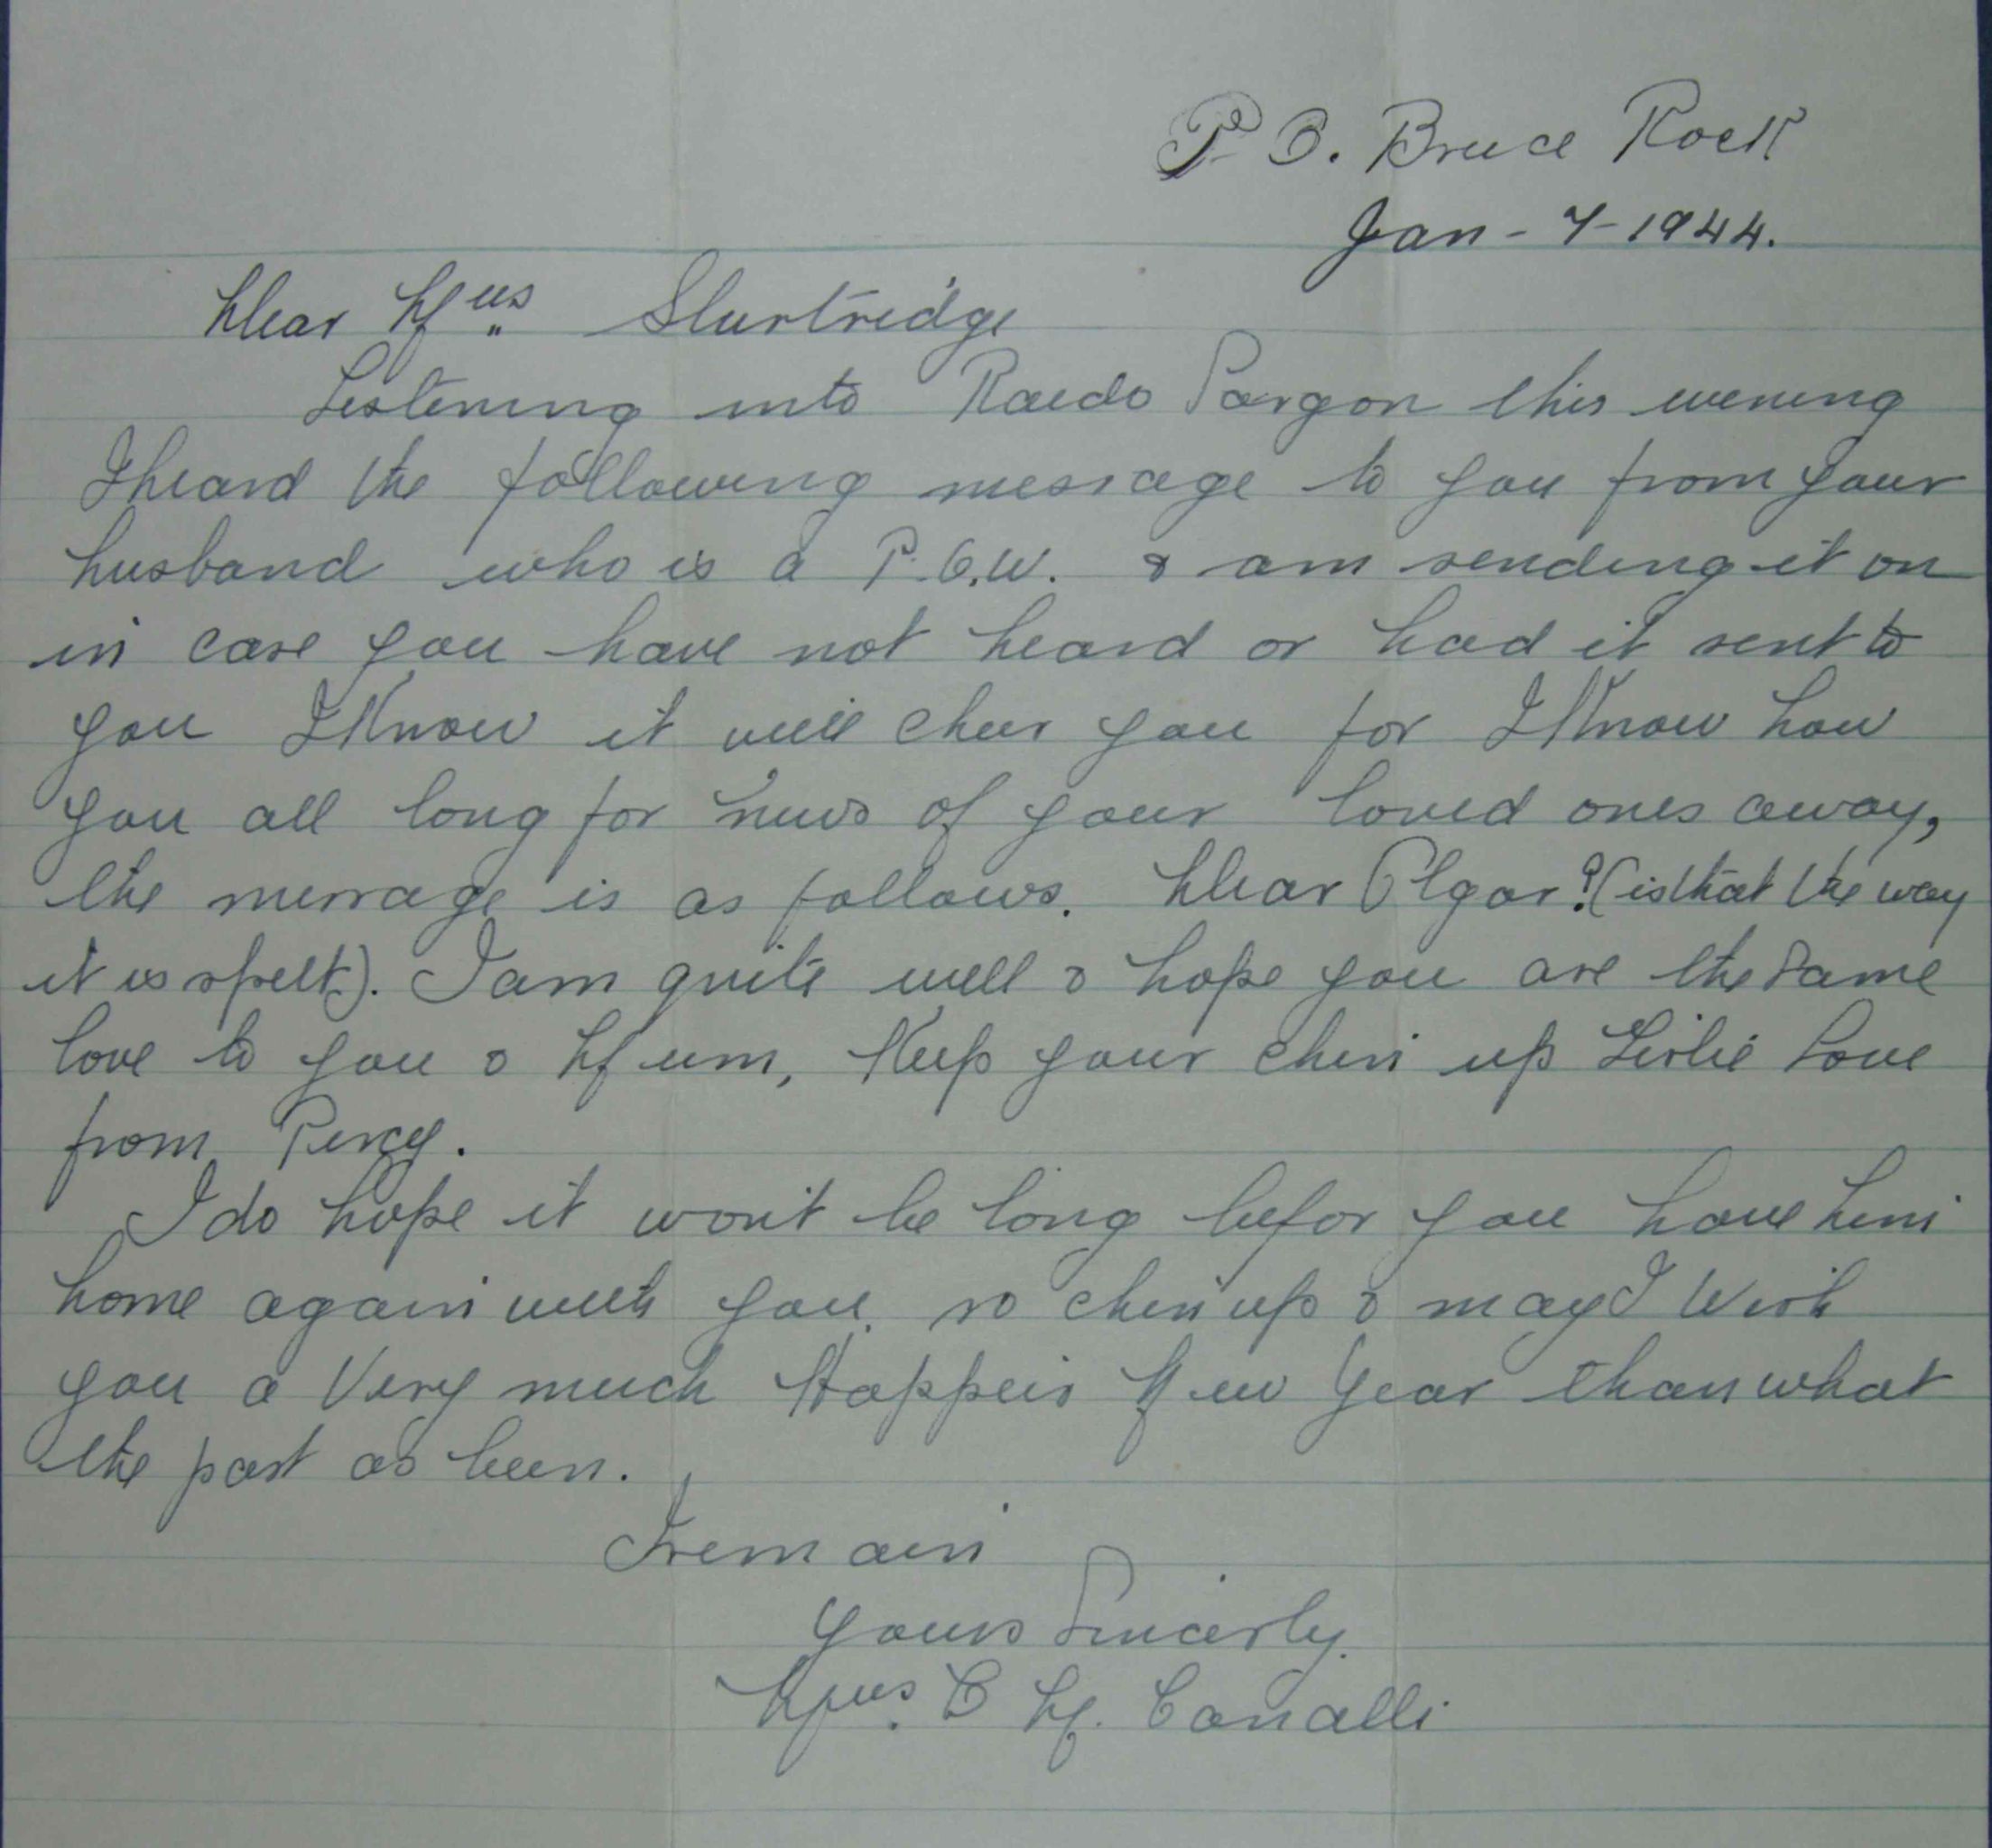 P O. Bruce Rock
Jan - 7 - 1944.
Dear Mrs Sturtridge
Listening into Raido Saigon this evening
I heard the following message to you from your
husband who is a P.O.W. & am sending it on
in case you have not heard or had it sent to
you I Know it will cheer you for I Know how
you all long for news of your loved ones away,
the message is as follows. Dear Olgar? (is that the way
it is spelt). I am quite well & hope you are the same
love to you & Mum, Keep your chin up Leslie Love
from Percy.
I do hope it won't be long befor you have him
home again with you. so chin up & may I Wish
you a Very much Happeir New Year than what
the past as been.
I remain
Yours Sincerly.
Mrs. C M.